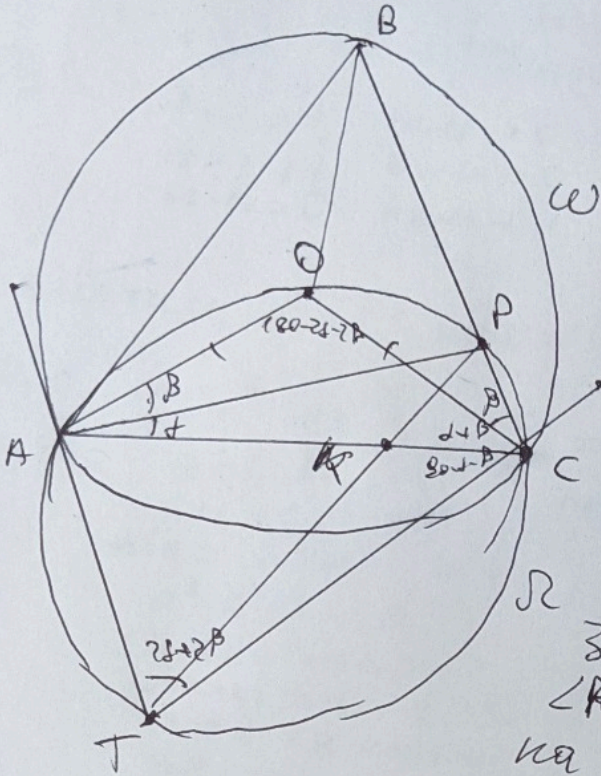 B
ω
O
180-2α-2β
P
β
β
α
α+β
90-α-β
A
K
C
Ω
2α+2β
T
на